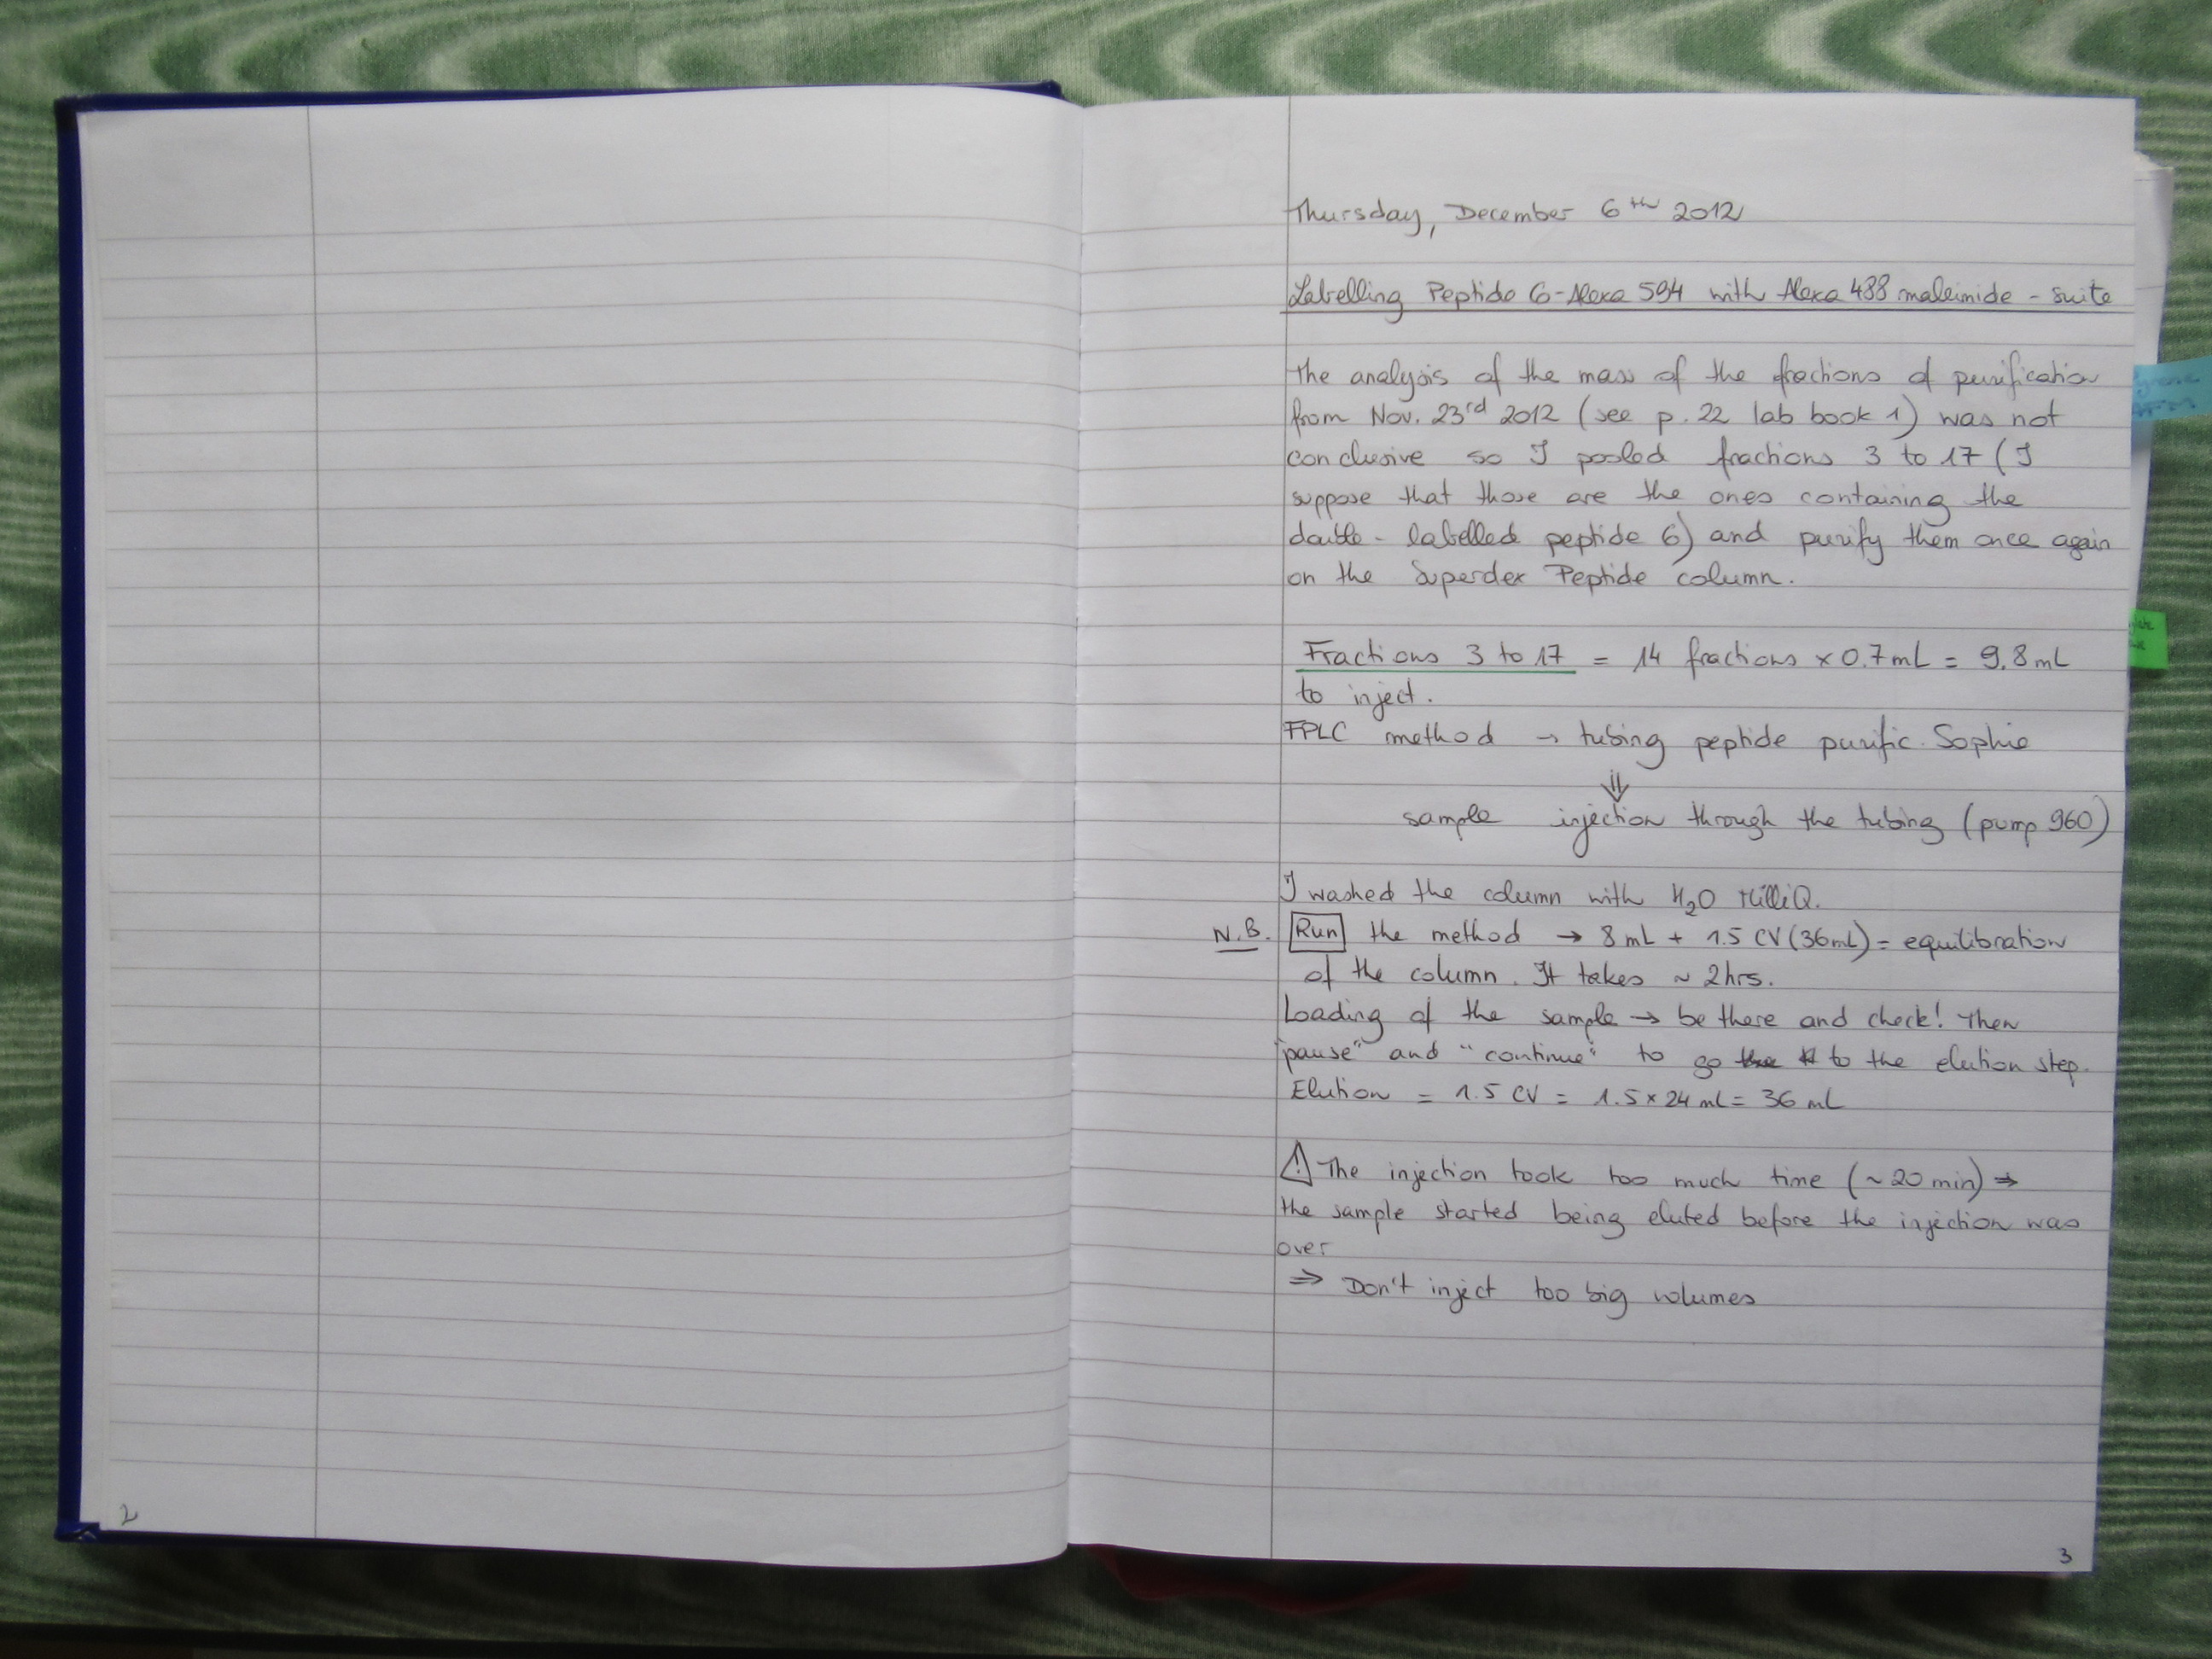 Thursday, December 6th 2012
Labelling Peptide 6-Alexa 594 with Alexa 488 maleimide - suite
The analysis of the mass of the fractions of purification
from Nov. 23rd 2012 (see p. 22 lab book 1) was not
conclusive so I pooled fractions 3 to 17 (I
suppose that those are the ones containing the
double-labelled peptide 6) and purify them once again
on the Superdex Peptide column.
Fractions 3 to 17 = 14 fractions x 0.7 mL = 9.8 mL
to inject.
FPLC method → tubing peptide purific. Sophie
⇓
sample injection through the tubing (pump 960)
I washed the column with H2O MilliQ.
N.B. Run the method → 8 mL + 1.5 CV (36mL) = equilibration
of the column. It takes ~ 2hrs.
Loading of the sample → be there and check! Then
"pause" and "continue" to go to the elution step.
Elution = 1.5 CV = 1.5 x 24 mL = 36 mL
⚠ The injection took too much time (~ 20 min) ⇒
the sample started being eluted before the injection was
over
⇒ Don't inject too big volumes
2
3